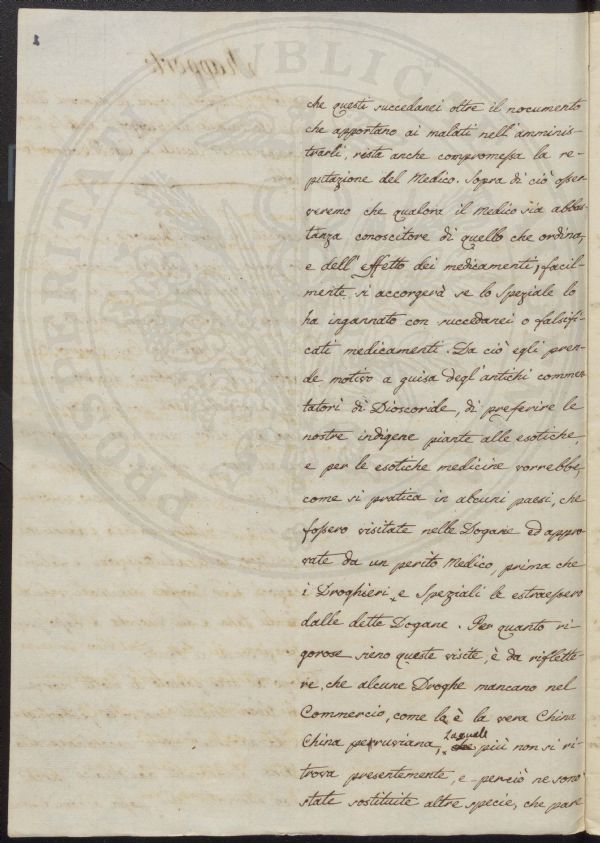 2
che questi succedanei oltre il nocumento
che apportano ai malati nell'amminis-
trarli, resta anche compromessa la re-
putazione del Medico. Sopra di ciò osser
veremo che qualora il Medico sia abbas-
tanza conoscitore di quello che ordina,
e dell'effetto dei medicamenti, facil-
mente si accorgerà se lo Speziale lo
ha ingannato con succedanei o falsifi-
cati medicamenti. Da ciò egli pren-
de motivo a guisa degl'antichi commen
tatori di Dioscoride, di preferire le
nostre indigene piante alle esotiche,
e per le esotiche medicine vorrebbe,
come si pratica in alcuni paesi, che
fossero visitate nelle Dogane ed appro-
vate da un perito Medico, prima che
i Droghieri, e Speziali le estraessero
dalle dette Dogane. Per quanto ri-
gorose sieno queste visite, è da riflette-
re, che alcune Droghe mancano nel
Commercio, come lo è la vera China
China perruviana, la quale più non si ri-
trova presentemente, e perciò ne sono
state sostituite altre specie, che pare